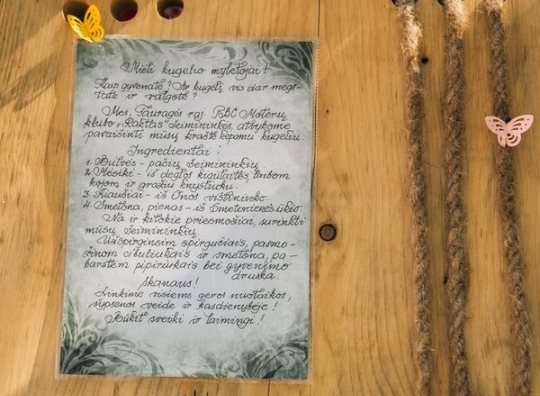 Mieli kugelio mylėtojai!
Kaip gyvenate? Ar kugelį vis dar megs-
tate ir valgote?
Mes, Tauragės raj. RBC Moterų
klubo „Raktas" šeimininkės, atvykome
pavaišinti mūsų krašte kepamu kugeliu.
Ingredientai:
1. Bulvės - pačių šeimininkių.
2. Mėsikė - iš deglos kiaulaitės, lašom
kojom ir gražiu knysliuku.
3. Kiaušiai - iš Onos vištininko.
4. Smetona, pienas - iš Smetonienės ūkio.
Na ir kitokie prieemožiai, surinkti
mūsų šeimininkių.
Užspirginsim spirgučiais, pasmo-
činom cibuliukais ir smetona, pa-
barstėm pipiriukais bei gyvenimo
druska.
Skanaus!
Linkime visiems geros nuotaikos,
šypsenos veide ir kasdienybėje!
Būkit sveiki ir laimingi!